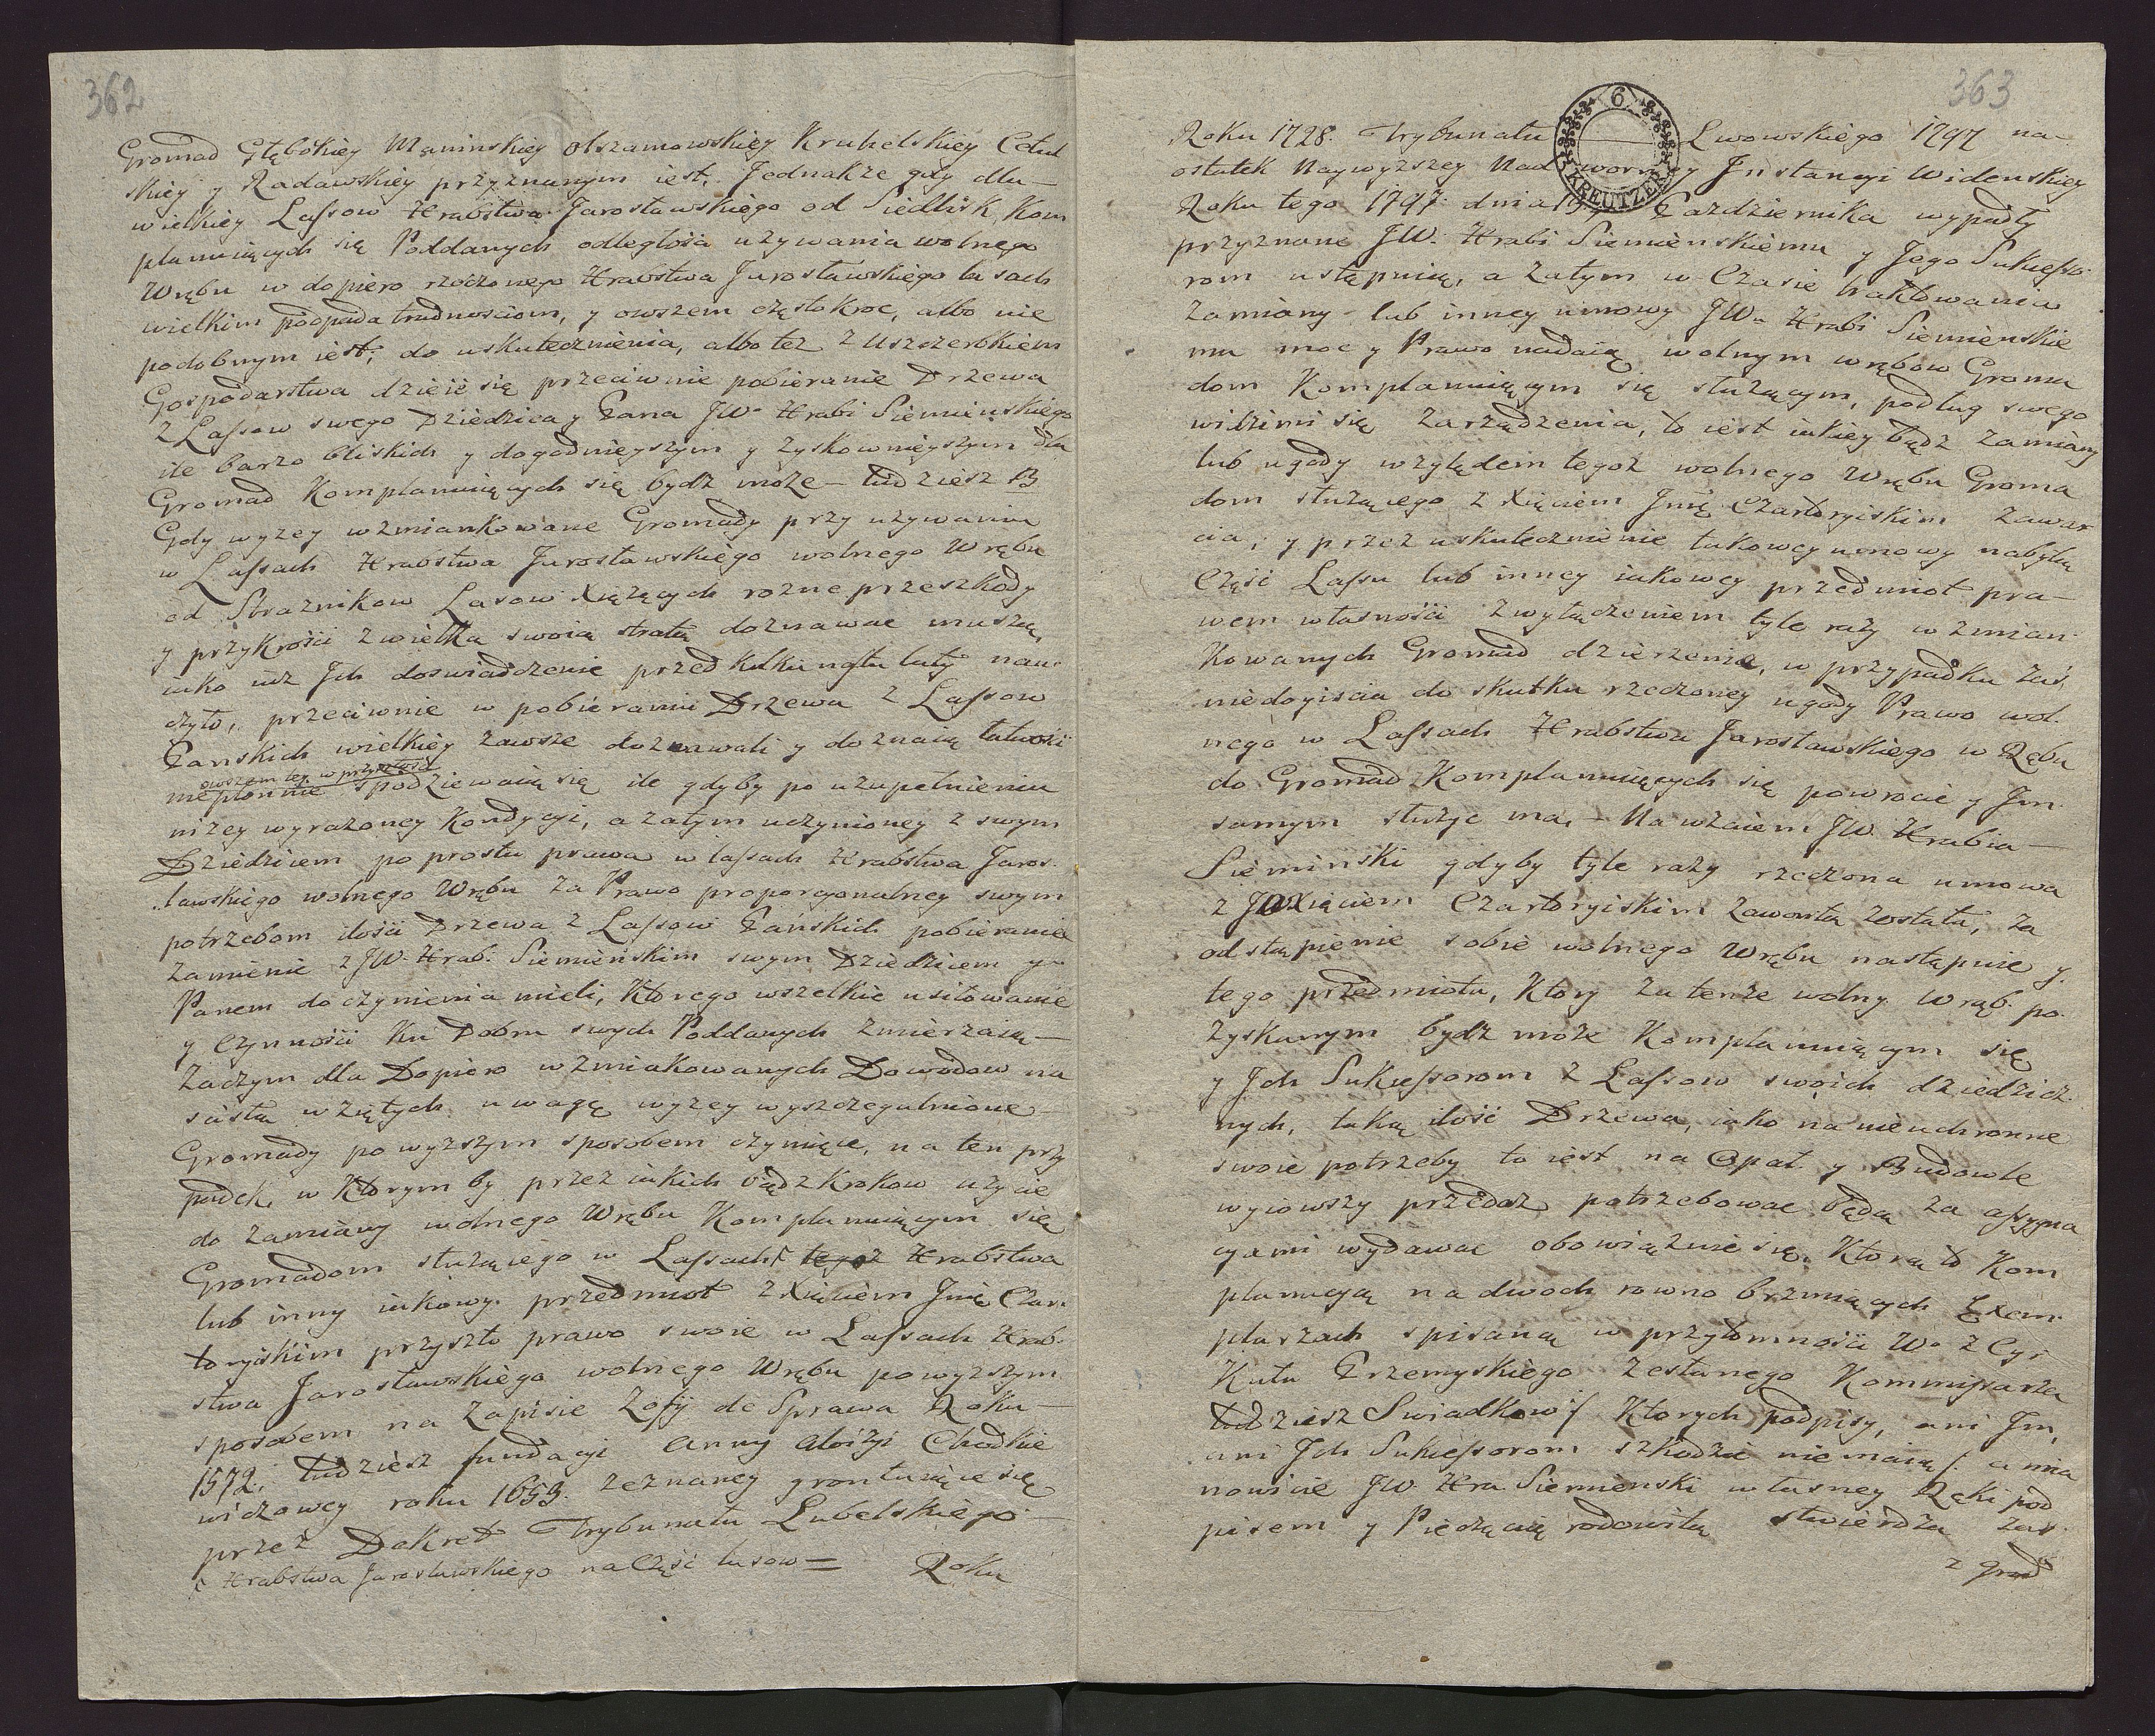 362
Gromad Głębokiey Maninskiey olszanowskiey Kruhelskiey Cetul
skiey y Radawskiey przyznanym iest, Jednakże gdy dla
wielkiey Lassow Hrabstwa Jarosławskiego od Siedlisk Kom
planuiących się Poddanych odległosci używania wolnego
Wrębu w dopiero rzeczonego Hrabstwa Jarosławskiego lasach
wielkim podpada trudnosciom, y owszem częstokroc, albo nie
podobnym iest, do uskutecznienia, albo tez z Uszczerbkiem
Gospodarstwa dzieie się przeciwnie pobieranie Drzewa
z Lassow swego Dziedzica y Pana JW. Hrabi Siemienskiego
ile barzo bliskich y dogodnieyszym y zyskownieyszym dla
Gromad Komplanuiących się bydź może – tudziesz B
Gdy wyzey wzmiankowane Gromady przy używaniu
w Lassach Hrabstwa Jarosławskiego wolnego Wrębu
od Straznikow Lasow Xiążęcych rozne przeszkody
y przykrosci z wielką swoią stratą doznawac muszą,
iako iuz Ich doswiadczenie przed kilkunastu laty nau
czyło, przeciwnie w pobieraniu Drzewa z Lassow
Panskich wielkiey zawsze doznawali y doznaią łatwosci
owszem tey w przyszłosci
niepłonnie spodziewaią się ile gdyby po uzupełnieniu
nizey wyrażoney Kondycyi, a zatym uczynioney z swym
Dziedzicem po prostu prawa w lassach Hrabstwa Jaros
ławskiego wolnego Wrębu za Prawo proporcyonalney swym
potrzebom ilosci Drzewa z Lassow Pańskich pobierania
zamienie z JW. Hrab. Siemieńskim swym Dziedzicem y
Panem do czynienia mieli, Ktorego wszelkie usiłowanie
y czynnosci Ku Dobru swych Poddanych zmierzaią –
Zaczym dla Dopiero wzmiakowanych Dowodow na
scisłą wziętych uwagę wyzey wyszczegulnione
Gromady powyzszym sposobem czyniące, na ten przy
padek, w Ktorym by przez iakich bądz Krokow użycie
do zamiany wolnego Wrębu Komplanuiącym się
Gromadom służącego w Lassach tegoż Hrabstwa
lub inny iakowy przedmiot z Xięciem Jmę Czar
toryiskim przyszło prawo swoie w Lassach Hrab
stwa Jarosławskiego wolnego Wrębu powyzszym
sposobem na Zapisie Zofij de Sprawa Roku
1572. tudziesz fundacyi Anny Aloizyi Chodkie
wiczowey roku 1653. zeznaney gruntuiące się
przez Dekret Trybunału Lubelskiego
Hrabstwa Jarosławskiego na Część lasow =
Roku
363
6
KREUTZER
Roku 1728. Trybunału Lwowskiego 1797 na
ostatek Naywyzszey Nadworney Instancyi Widenskiey
Roku tego 1797. dnia Pazdziernika wypadły
przyznane JW. Hrabi Siemienskiemu y Jego Sukcesso
rom ustąpuią, a zatym w Czasie traktowania
zamiany lub inney umowy JW. Hrabi Siemienskie
mu moc y Prawo nadaią wolnym wrębow Groma
dom Komplanuiącym się służącym, podług swego
widzimi się zarządzenia, to iest iakiey bądz zamiany
lub ugody względem tegoż wolnego Wrębu Groma
dom służącego z Xięciem Jmię Czartoryiskim zawar
cia; y przez uskutecznienie takowey umowy nabytą
Część Lassu lub inney iakowey przedmiot pra
wem własnosci z wyłączeniem tyle razy wzmian
Kowanych Gromad dzierzenia, w przypadku zaś
niedoyiscia do skutku rzeczoney ugody Prawo wol
nego w Lassach Hrabstwa Jarosławskiego w Rębu
do Gromad Komplanuiących się powrocic y Im
samym służyc ma, – Nawzaiem JW. Hrabia
Siemiński gdyby tyle razy rzeczona umowa
z JOXięciem Czartoryiskim zawartą została, za
odstąpienie sobie wolnego Wrębu nastąpnie y
tego przedmiotu, Ktory za tenze wolny Wrąb. po
zyskanym bydz może Komplanuiącym się
y Ich Sukcessorom z Lassow swoich dziedzicz
nych, taką ilość Drzewa, iako na nieuchronne
swoie potrzeby to iest na Opał y Budowle
wyiowszy przedaz potrzebowac będą za assygna
cyami wydawac obowiązuie się. Ktorą to Kom
planacyą na dwoch rowno brzmiących Exem
plarzach spisaną w przytomnosci W. z Cyr
Kułu Przemyskiego zesłanego Kommissarza
tudziesz Swiadkow Ktorych podpisy, ani Im,
ani Ich Sukcessorom szkodzic nie maią a mia
nowicie JW. Hra Siemienski własney Ręki pod
pisem y Pieczęcią rodowitą stwierdza zas
z Grod